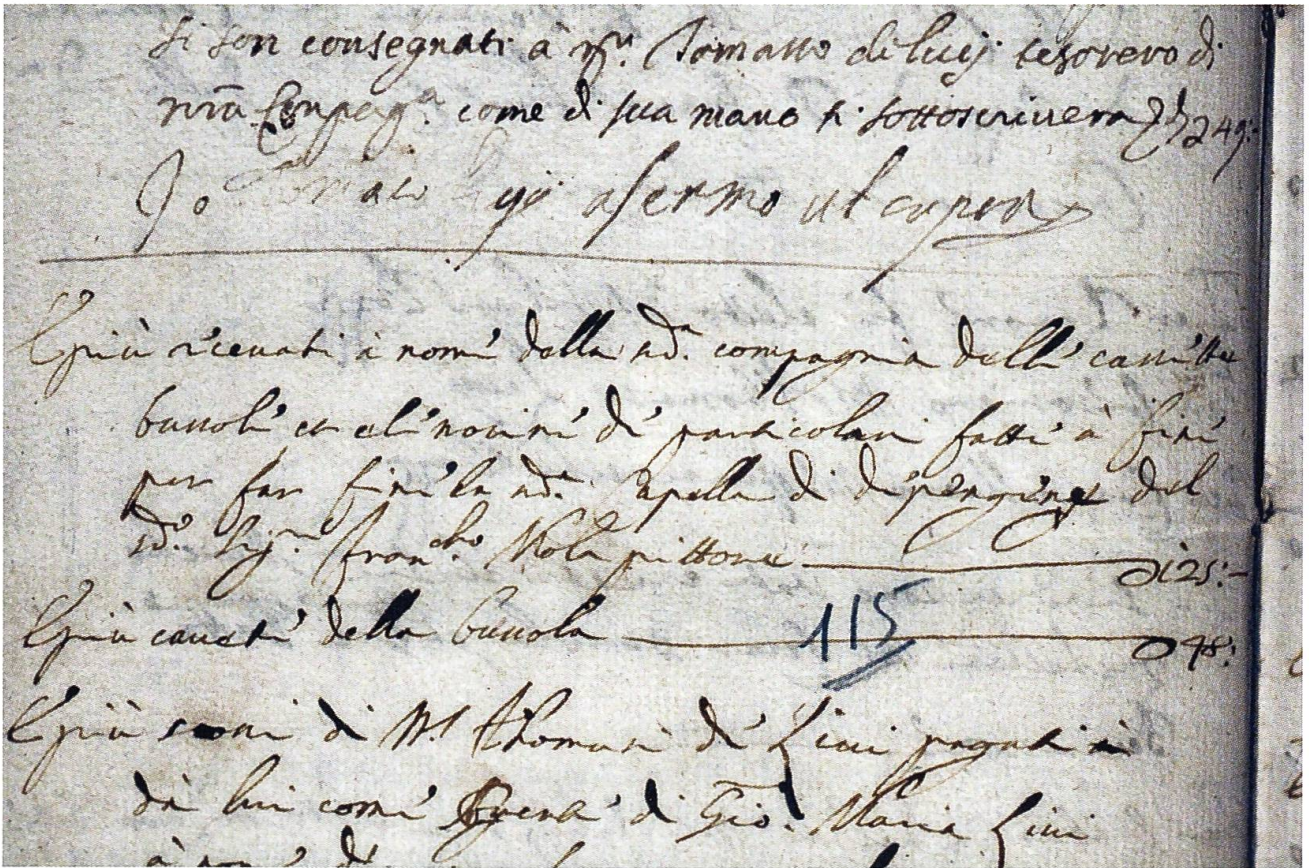 si son consegnati à mr. Tomasso de luij tesorero di
nrã Compaga. come di sua mano si sottoscriuera 249:
Io Tomaso afermo ut supra
E più riceuuti à nome della sda. compagnia delle cassette
bussole et elemosine de particolari fatte à fine
per far finire la sda. Capella di dipengere del
sdo. Sigre. francho. Mola pittore 125:-
E più cauate della bussola 48:
115
E più di Mr. Thomaso de Liui pagati
da lui come di Gio. Maria Liui